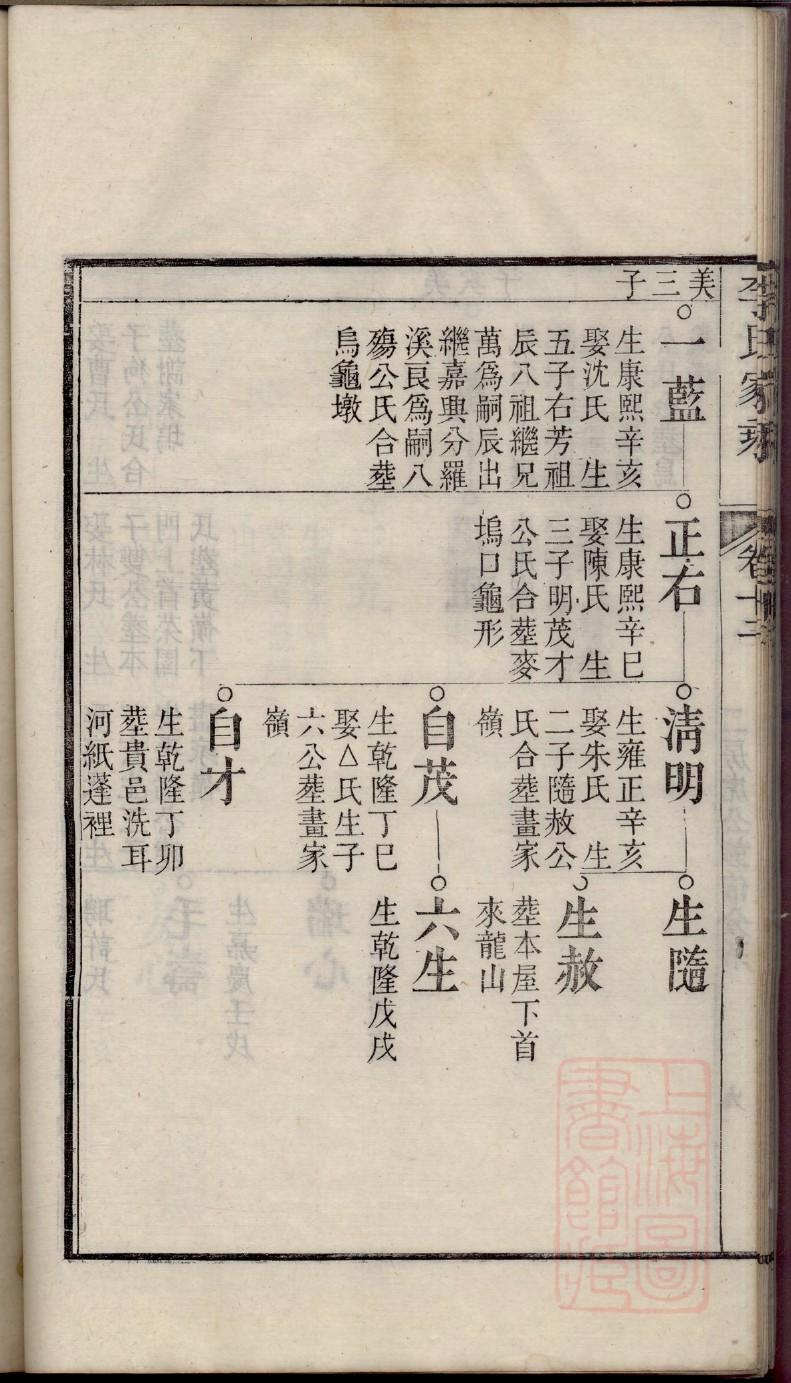 李氏家乘
卷十二
美三子
一藍
生康熙辛亥
娶沈氏 生
五子右芳祖
辰八祖繼兄
萬爲嗣辰出
繼嘉興分羅
溪㒷爲嗣八
殤公氏合塟
烏龜墩
正右
生康熙辛巳
娶陳氏 生
三子明茂才
公氏合塟麥
塢口龜形
淸明
生雍正辛亥
娶朱氏 生
二子隨赦公
氏合塟畫家
嶺
生隨
生赦
塟本屋下首
來龍山
自茂
生乾隆丁巳
娶△氏生子
六公塟畫家
嶺
六生
生乾隆戊戌
自才
生乾隆丁卯
塟貴邑洗耳
河紙蓬裡
上海圖
書館藏